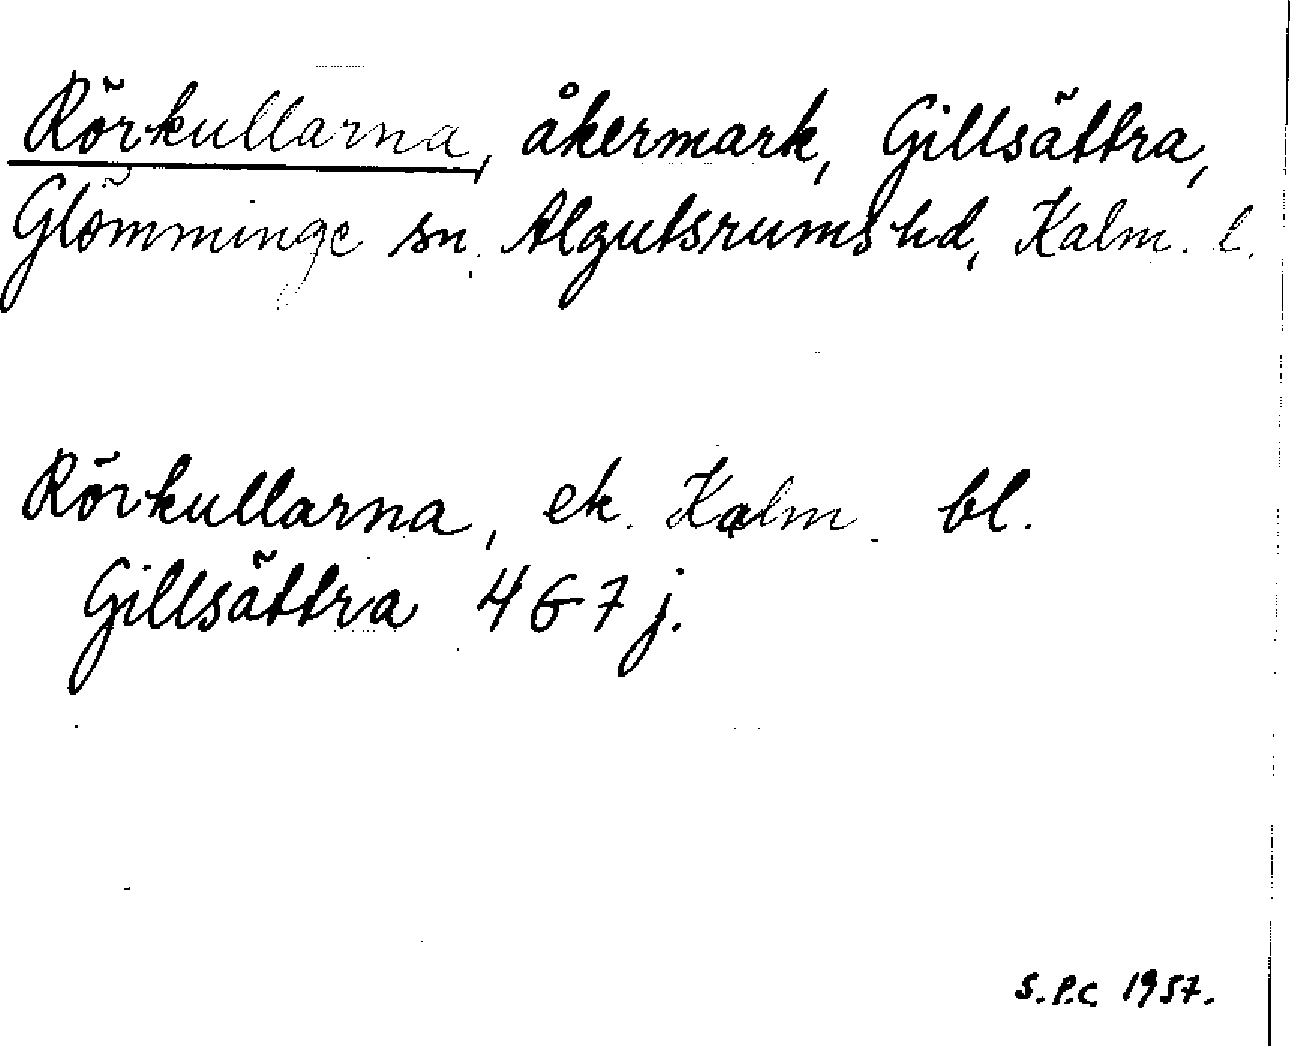 Rörkullarna, åkermark, Gillsättra,
Glömminge sn. Algutsrums hd, Kalm. l.
Rörkullarna, ek. Kalm. bl.
Gillsättra 4 G 7 j.
S.P.C 1957.